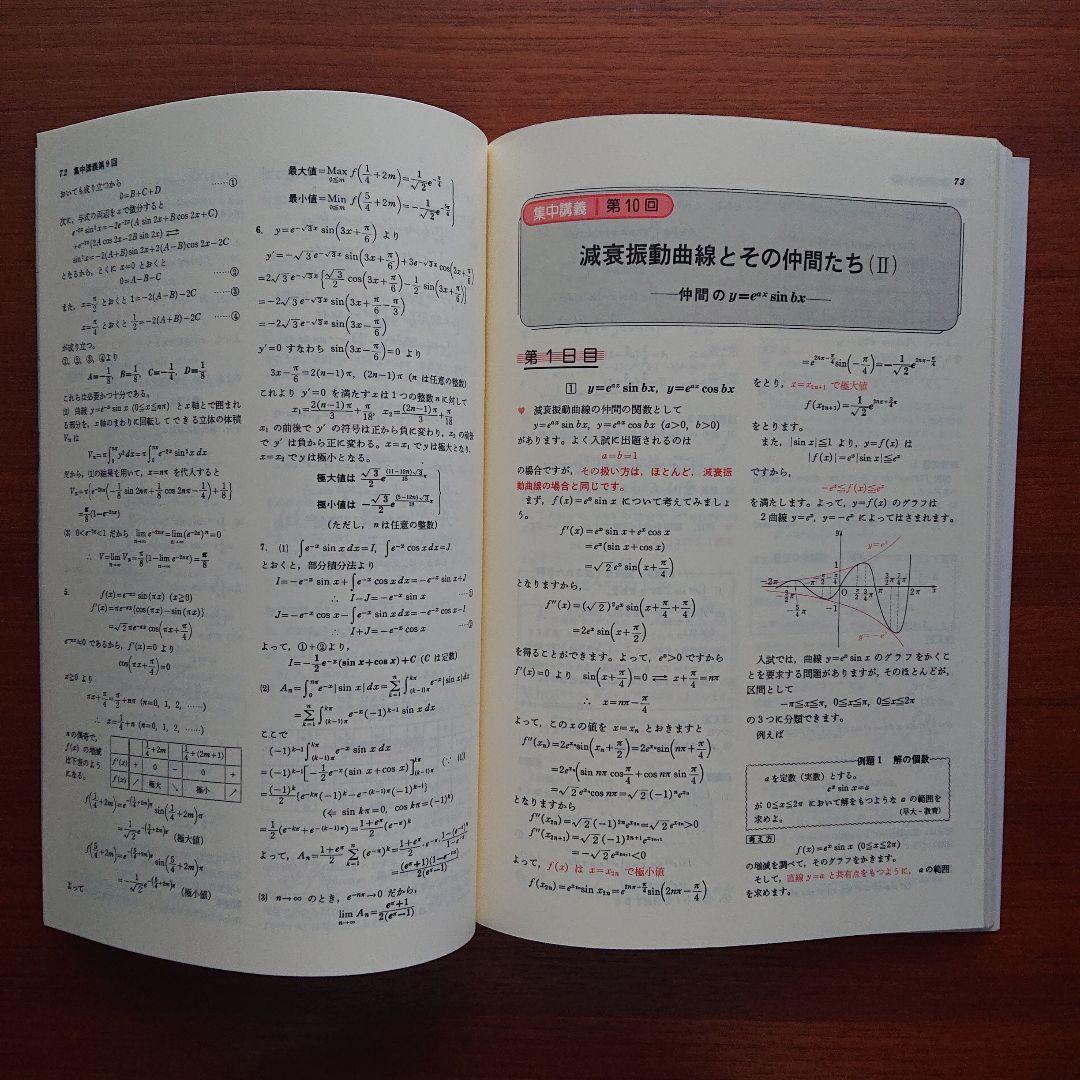 72 集中講義第9回
おいても成り立つから
0=B+C+D ……①
次に，与式の両辺をxで微分すると
e^{-2x}sin²x=-2e^{-2x}(A sin 2x+B cos 2x+C)
+e^{-2x}(2A cos 2x-2B sin 2x) ⇌
sin²x=-2(A+B)sin 2x+2(A-B)cos 2x-2C
となるから，とくに x=0 とおくと
0=A-B-C ……②
また，x=π/2 とおくと 1=-2(A-B)-2C ……③
x=π/4 とおくと 1/2=-2(A+B)-2C ……④
が成り立つ。
①，②，③，④より
A=-1/8，B=1/8，C=-1/4，D=1/8
これらは必要かつ十分である。
(2) 曲線 y=e^{-x}sin x (0≦x≦nπ) とx軸とで囲まれ
る部分を，x軸のまわりに回転してできる立体の体積
Vₙは
Vₙ=π∫y²dx=π∫e^{-2x}sin²x dx
だから，(1)の結果を用いて，x=nπ を代入すると
Vₙ=π{e^{-2nπ}(-1/8 sin 2nπ+1/8 cos 2nπ-1/4)+1/8}
=π/8(1-e^{-2nπ})
(3) 0<e^{-2π}<1 だから lim_{n→∞} e^{-2nπ}=lim_{n→∞}(e^{-2π})ⁿ=0
∴ V=lim_{n→∞} Vₙ=lim_{n→∞} π/8(1-e^{-2nπ})=π/8
5. f(x)=e^{-πx}sin(πx) (x≧0)
f'(x)=πe^{-πx}{cos(πx)-sin(πx)}
=√2πe^{-πx}cos(πx+π/4)
e^{-πx}≠0 であるから，f'(x)=0 より
cos(πx+π/4)=0
x≧0 より
πx+π/4=π/2+nπ (n=0, 1, 2, ……)
∴ x=1/4+n (n=0, 1, 2, ……)
nの偶奇で，
f(x) の増減
は下表のよう
になる。
1/4+2m 1/4+(2m+1)
f'(x) + 0 - 0 +
f(x) ↗ 極大 ↘ 極小 ↗
f(1/4+2m)=e^{-(1/4+2m)π}sin(1/4+2m)π
=1/√2 e^{-(1/4+2m)π} (極大値)
f(5/4+2m)=e^{-(5/4+2m)π}sin(5/4+2m)π
=-1/√2 e^{-(5/4+2m)π} (極小値)
よって
最大値=Max_{0≦m} f(1/4+2m)=1/√2 e^{-π/4}
最小値=Min_{0≦m} f(5/4+2m)=-1/√2 e^{-5π/4}
6. y=e^{-√3x}sin(3x+π/6) より
y'=-√3e^{-√3x}sin(3x+π/6)+3e^{-√3x}cos(3x+π/6)
=2√3e^{-√3x}{√3/2 cos(3x+π/6)-1/2 sin(3x+π/6)}
=-2√3e^{-√3x}sin(3x+π/6-π/3)
=-2√3e^{-√3x}sin(3x-π/6)
y'=0 すなわち sin(3x-π/6)=0 より
3x-π/6=2(n-1)π，(2n-1)π (n は任意の整数)
これより y'=0 を満たす x は1つの整数 n に対して
x₁=2(n-1)π/3+π/18，x₂=(2n-1)π/3+π/18
x₁ の前後で y' の符号は正から負に変わり，x₂ の前後
で y' は負から正に変わる。x=x₁ で y は極大となり，
x=x₂ で y は極小となる。
極大値は √3/2 e^{(11-12n)√3/18 π}
極小値は -√3/2 e^{(5-12n)√3/18 π}
(ただし，n は任意の整数)
7. (1) ∫e^{-x}sin x dx=I，∫e^{-x}cos x dx=J
とおくと，部分積分法より
I=-e^{-x}sin x+∫e^{-x}cos x dx=-e^{-x}sin x+J
∴ I-J=-e^{-x}sin x ……①
J=-e^{-x}cos x-∫e^{-x}sin x dx=-e^{-x}cos x-I
∴ I+J=-e^{-x}cos x ……②
よって，①+②より，
I=-1/2 e^{-x}(sin x+cos x)+C (C は定数)
(2) Aₙ=∫₀^{nπ} e^{-x}|sin x|dx=Σ_{k=1}^{n}∫_{(k-1)π}^{kπ} e^{-x}|sin x|dx
=Σ_{k=1}^{n}∫_{(k-1)π}^{kπ} e^{-x}(-1)^{k-1}sin x dx
ここで
(-1)^{k-1}∫_{(k-1)π}^{kπ} e^{-x}sin x dx
=(-1)^{k-1}[-1/2 e^{-x}(sin x+cos x)]_{(k-1)π}^{kπ} (∵ (1))
=(-1)^{k}/2 {e^{-kπ}(-1)^{k}-e^{-(k-1)π}(-1)^{k-1}}
(⇐ sin kπ=0，cos kπ=(-1)^{k})
=1/2(e^{-kπ}+e^{-(k-1)π})=(1+e^π)/2 (e^{-π})^k
よって，Aₙ=(1+e^π)/2 Σ_{k=1}^{n}(e^{-π})^k=(1+e^π)/2・e^{-π}・(1-(e^{-π})ⁿ)/(1-e^{-π})
=(e^π+1)(1-e^{-nπ})/2(e^π-1)
(3) n→∞ のとき，e^{-nπ}→0 だから，
lim_{n→∞} Aₙ=(e^π+1)/2(e^π-1)
73
集中講義 第10回
減衰振動曲線とその仲間たち(Ⅱ)
——仲間の y=e^{ax}sin bx——
第1日目
1 y=e^{ax}sin bx，y=e^{ax}cos bx
♥ 減衰振動曲線の仲間の関数として
y=e^{ax}sin bx，y=e^{ax}cos bx (a>0，b>0)
があります。よく入試に出題されるのは
a=b=1
の場合ですが，その扱い方は，ほとんど，減衰振
動曲線の場合と同じです。
まず，f(x)=e^x sin x について考えてみましょ
う。
f'(x)=e^x sin x+e^x cos x
=e^x(sin x+cos x)
=√2 e^x sin(x+π/4)
となりますから，
f''(x)=(√2)²e^x sin(x+π/4+π/4)
=2e^x sin(x+π/2)
を得ることができます。よって，e^x>0 ですから
f'(x)=0 より sin(x+π/4)=0 ⇌ x+π/4=nπ
∴ x=nπ-π/4
よって，このxの値を x=xₙ とおきますと
f''(xₙ)=2e^{xₙ}sin(xₙ+π/2)=2e^{xₙ}sin(nπ+π/4)
=2e^{xₙ}(sin nπ cos π/4+cos nπ sin π/4)
=√2e^{xₙ}cos nπ=√2(-1)ⁿe^{xₙ}
となりますから
f''(x₂ₙ)=√2(-1)^{2n}e^{x₂ₙ}=√2e^{x₂ₙ}>0
f''(x₂ₙ₊₁)=√2(-1)^{2n+1}e^{x₂ₙ₊₁}
=-√2e^{x₂ₙ₊₁}<0
よって，f(x) は x=x₂ₙ で極小値
f(x₂ₙ)=e^{x₂ₙ}sin x₂ₙ=e^{2nπ-π/4}sin(2nπ-π/4)
=e^{2nπ-π/4}sin(-π/4)=-1/√2 e^{2nπ-π/4}
をとり，x=x₂ₙ₊₁ で極大値
f(x₂ₙ₊₁)=1/√2 e^{2nπ+3/4π}
をとります。
また，|sin x|≦1 より，y=f(x) は
|f(x)|=e^x|sin x|≦e^x
ですから，
-e^x≦f(x)≦e^x
を満たします。よって，y=f(x) のグラフは
2曲線 y=e^x，y=-e^x によってはさまれます。
y
y=e^x
1
-1
O
2π
x
y=-e^x
入試では，曲線 y=e^x sin x のグラフをかくこ
とを要求する問題がありますが，そのほとんどが，
区間として
-π≦x≦π，0≦x≦π，0≦x≦2π
の3つに分類できます。
例えば
例題1 解の個数
a を定数（実数）とする。
e^x sin x=a
が 0≦x≦2π において解をもつような a の範囲を
求めよ。
(早大－教育)
考え方 f(x)=e^x sin x (0≦x≦2π)
の増減を調べて，そのグラフをかきます。
そして，直線 y=a と共有点をもつように，a の範囲
を求めます。